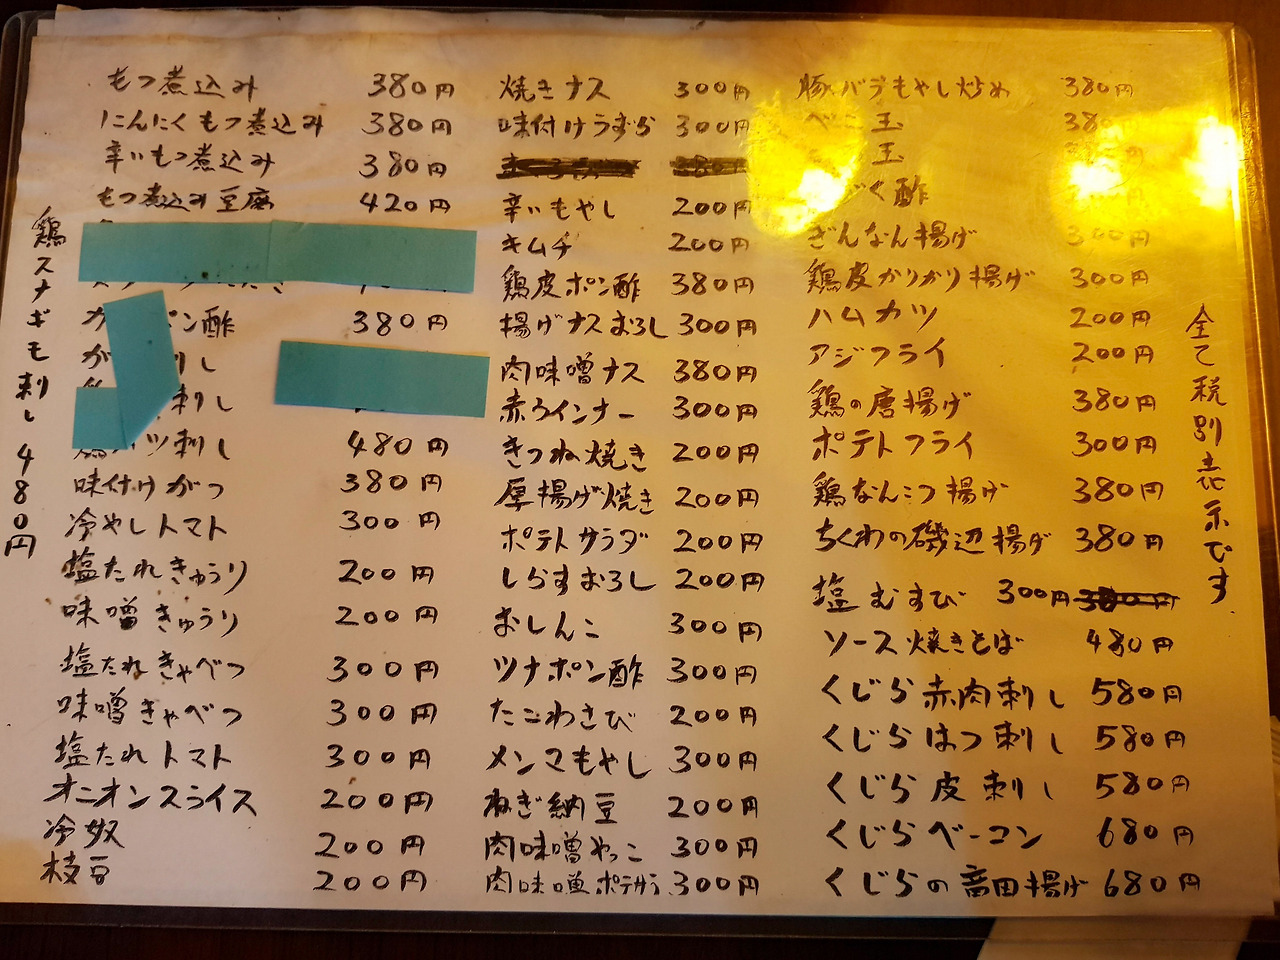 もつ煮込み 380円
にんにくもつ煮込み 380円
辛いもつ煮込み 380円
もつ煮込み豆腐 420円
ポン酢 380円
が 刺し
刺し
ツ刺し 480円
味付けがつ 380円
冷やしトマト 300円
塩たれきゅうり 200円
味噌きゅうり 200円
塩たれきゃべつ 300円
味噌きゃべつ 300円
塩たれトマト 300円
オニオンスライス 200円
冷奴 200円
枝豆 200円
鶏スナギモ刺し 480円
焼きナス 300円
味付けうずら 300円
辛いもやし 200円
キムチ 200円
鶏皮ポン酢 380円
揚げナスおろし 300円
肉味噌ナス 380円
赤ウインナー 300円
きつね焼き 200円
厚揚げ焼き 200円
ポテトサラダ 200円
しらすおろし 200円
おしんこ 300円
ツナポン酢 300円
たこわさび 200円
メンマもやし 300円
ねぎ納豆 200円
肉味噌やっこ 300円
肉味噌ポテサラ 300円
豚バラもやし炒め 380円
玉 38
玉
く酢
ぎんなん揚げ 300円
鶏皮かりかり揚げ 300円
ハムカツ 200円
アジフライ 200円
鶏の唐揚げ 380円
ポテトフライ 300円
鶏なんこつ揚げ 380円
ちくわの磯辺揚げ 380円
塩むすび 300円
ソース焼きそば 480円
くじら赤肉刺し 580円
くじらはつ刺し 580円
くじら皮刺し 580円
くじらベーコン 680円
くじらの竜田揚げ 680円
全て税別表示です。